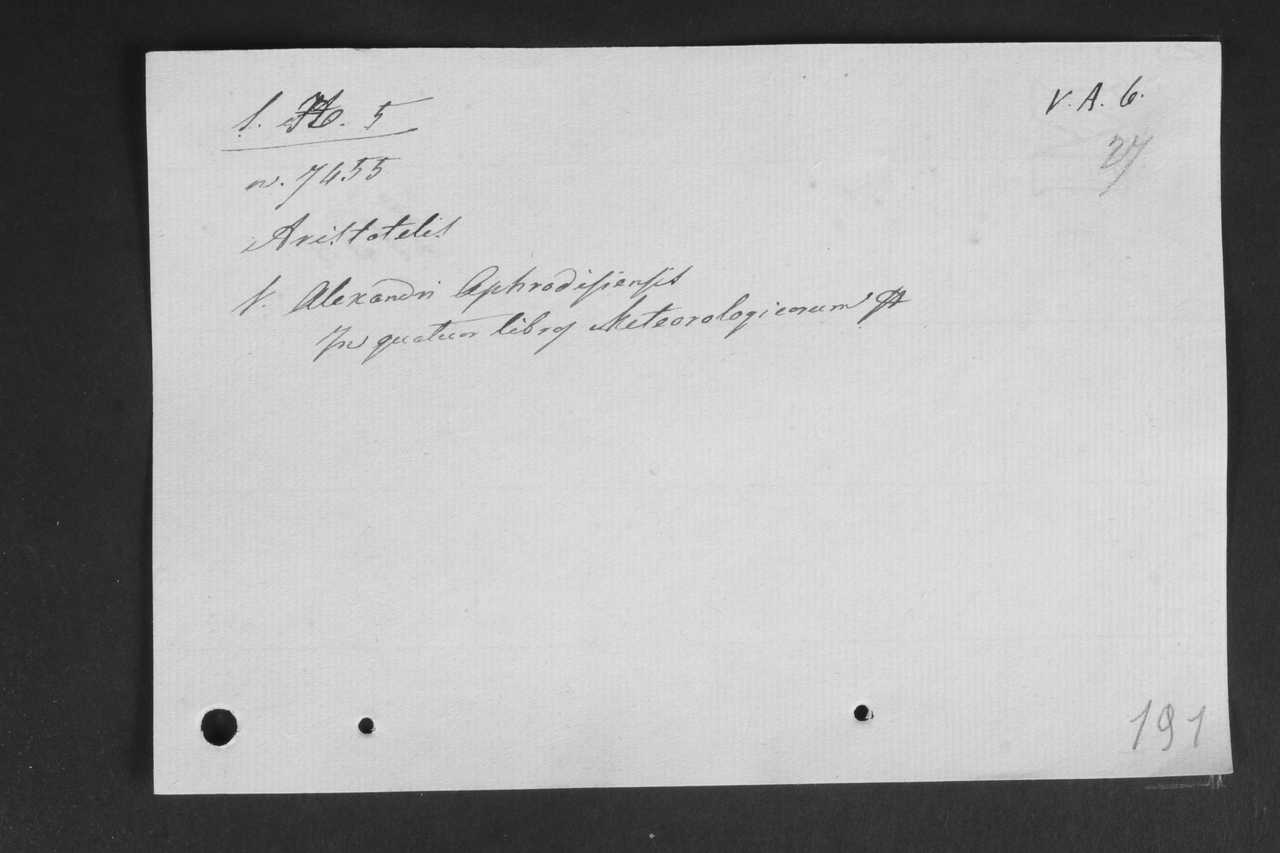 V. A. 6.
27
l. H. 5
n. 7455
Aristotelis
V. Alexandri Aphrodisiensis
In quatuor libros Meteorologicorum
191